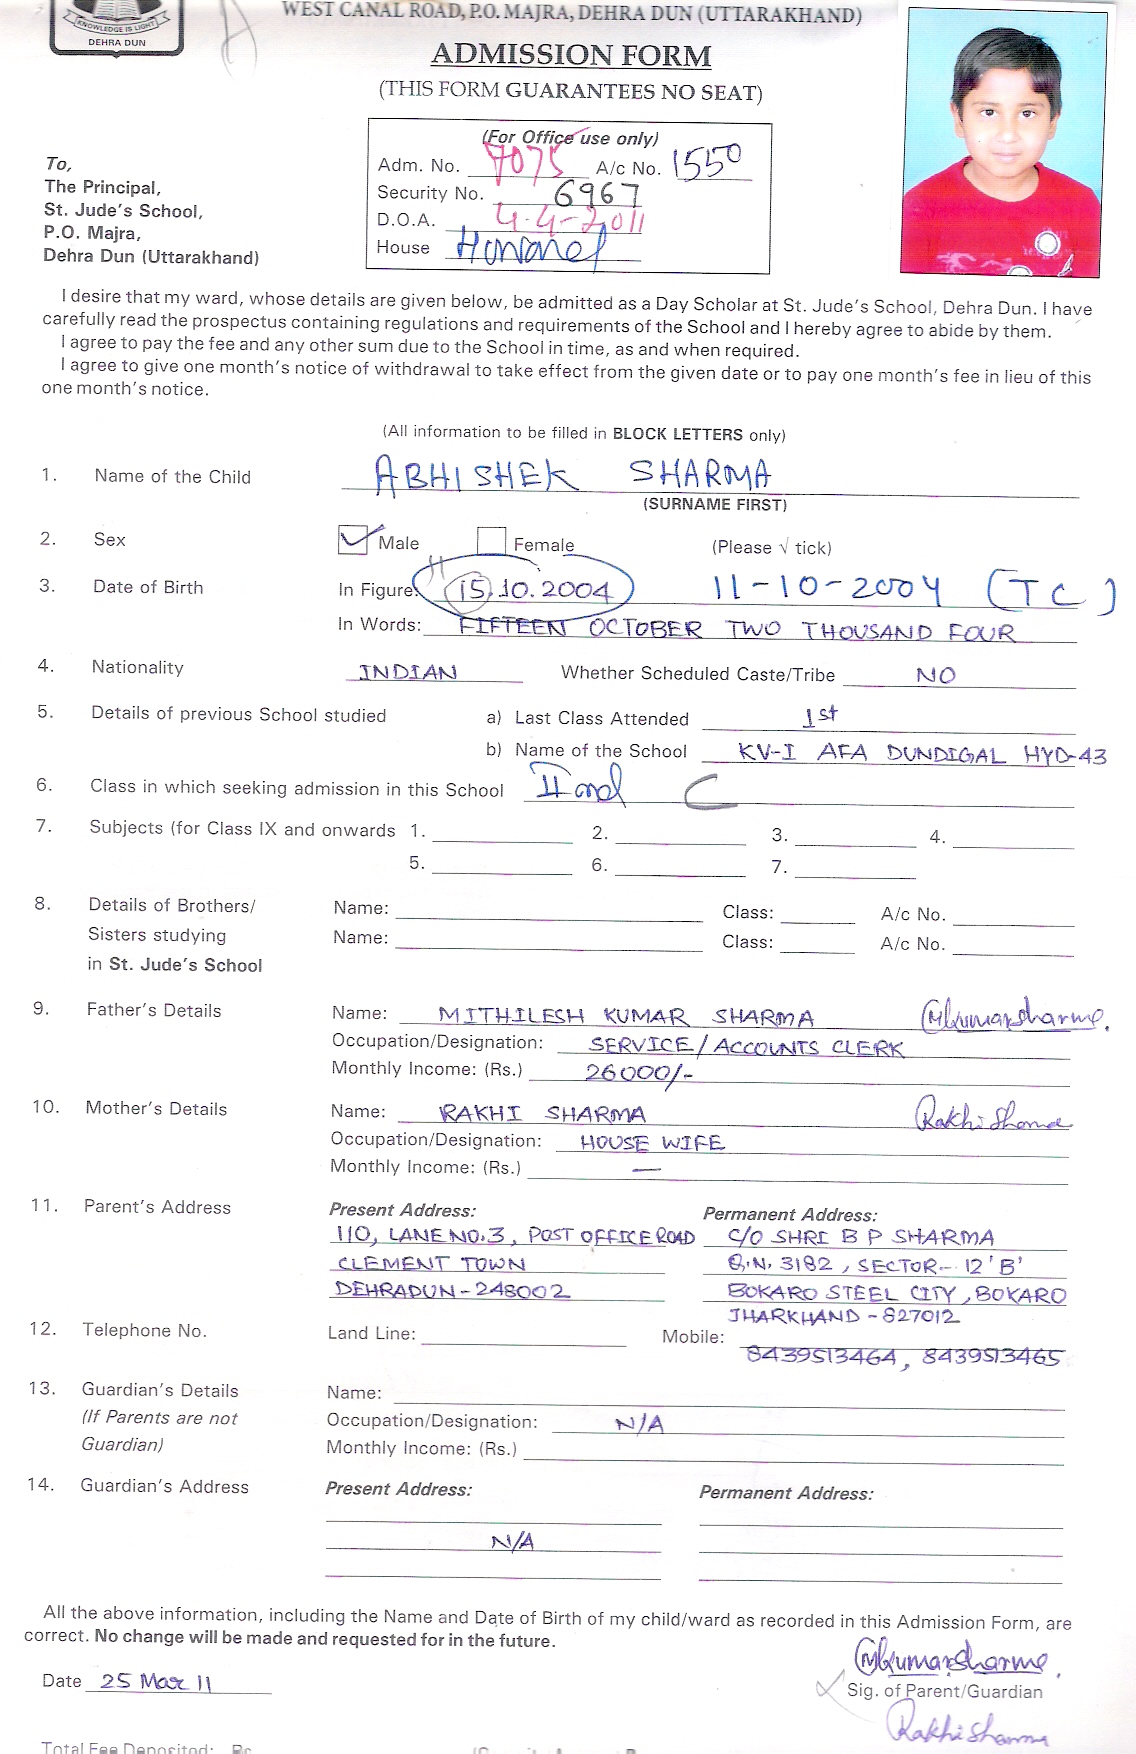 KNOWLEDGE IS LIGHT
DEHRA DUN
WEST CANAL ROAD, P.O. MAJRA, DEHRA DUN (UTTARAKHAND)
ADMISSION FORM
(THIS FORM GUARANTEES NO SEAT)
(For Office use only)
Adm. No. 7075 A/c No. 1550
Security No. 6967
D.O.A. 4-4-2011
House
To,
The Principal,
St. Jude's School,
P.O. Majra,
Dehra Dun (Uttarakhand)
I desire that my ward, whose details are given below, be admitted as a Day Scholar at St. Jude's School, Dehra Dun. I have
carefully read the prospectus containing regulations and requirements of the School and I hereby agree to abide by them.
I agree to pay the fee and any other sum due to the School in time, as and when required.
I agree to give one month's notice of withdrawal to take effect from the given date or to pay one month's fee in lieu of this
one month's notice.
(All information to be filled in BLOCK LETTERS only)
1. Name of the Child ABHISHEK SHARMA
(SURNAME FIRST)
2. Sex Male Female (Please √ tick)
3. Date of Birth In Figure: 15.10.2004 11-10-2004 (TC)
11
In Words: FIFTEEN OCTOBER TWO THOUSAND FOUR
4. Nationality INDIAN Whether Scheduled Caste/Tribe NO
5. Details of previous School studied a) Last Class Attended 1st
b) Name of the School KV-I AFA DUNDIGAL HYD-43
6. Class in which seeking admission in this School II nd C
7. Subjects (for Class IX and onwards 1. 2. 3. 4.
5. 6. 7.
8. Details of Brothers/ Name: Class: A/c No.
Sisters studying Name: Class: A/c No.
in St. Jude's School
9. Father's Details Name: MITHILESH KUMAR SHARMA MKumarsharma.
Occupation/Designation: SERVICE/ACCOUNTS CLERK
Monthly Income: (Rs.) 26000/-
10. Mother's Details Name: RAKHI SHARMA Rakhi Sharma
Occupation/Designation: HOUSE WIFE
Monthly Income: (Rs.) —
11. Parent's Address Present Address: Permanent Address:
110, LANE NO.3, POST OFFICE ROAD C/O SHRI B P SHARMA
CLEMENT TOWN Q.N. 3182, SECTOR- 12 'B'
DEHRADUN-248002 BOKARO STEEL CITY, BOKARO
JHARKHAND-827012
12. Telephone No. Land Line: Mobile: 8439513464, 8439513465
13. Guardian's Details Name:
(If Parents are not Occupation/Designation: N/A
Guardian) Monthly Income: (Rs.)
14. Guardian's Address Present Address: Permanent Address:
N/A
All the above information, including the Name and Date of Birth of my child/ward as recorded in this Admission Form, are
correct. No change will be made and requested for in the future.
MKumarsharma.
Date 25 Mar 11
Sig. of Parent/Guardian
Rakhi Sharma
Total Fee Deposited: Rs